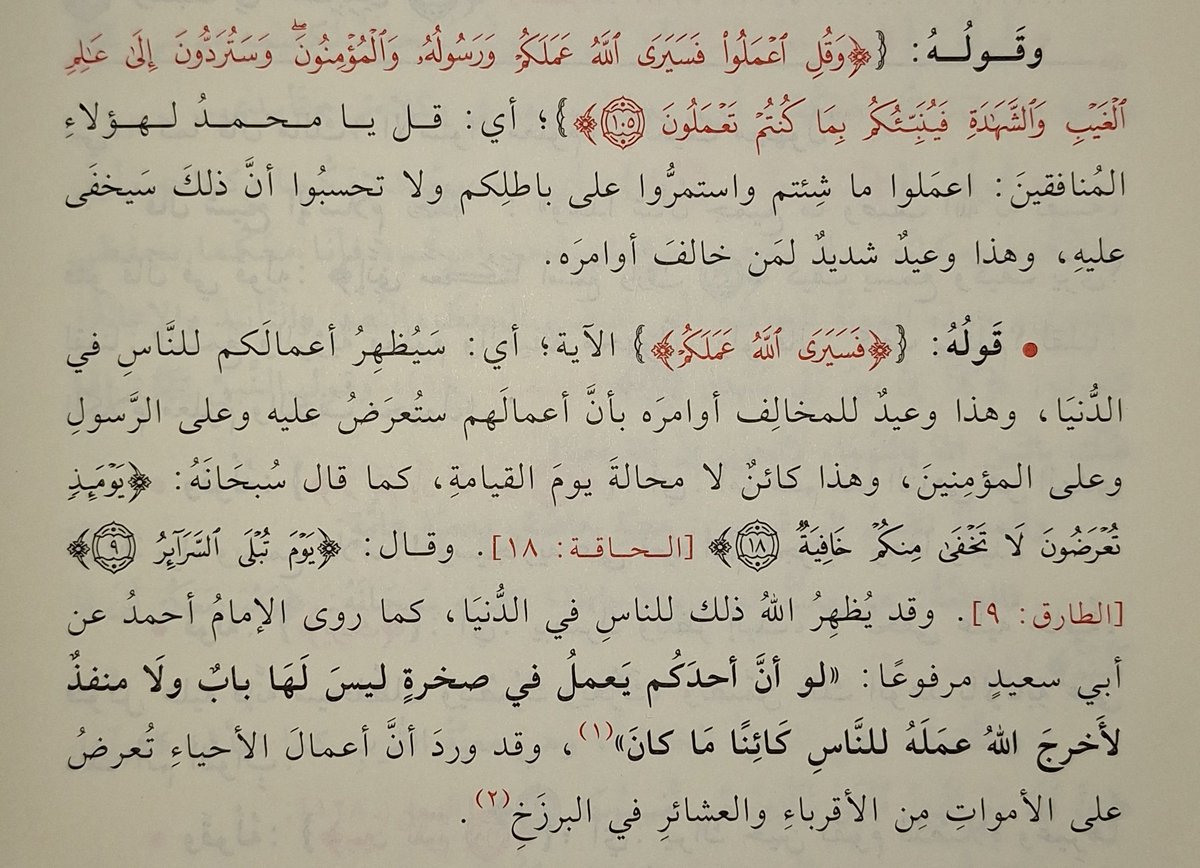 وقَـولُـهُ: {﴿وَقُلِ ٱعۡمَلُواْ فَسَيَرَى ٱللَّهُ عَمَلَكُمۡ وَرَسُولُهُۥ وَٱلۡمُؤۡمِنُونَۖ وَسَتُرَدُّونَ إِلَىٰ عَٰلِمِ
ٱلۡغَيۡبِ وَٱلشَّهَٰدَةِ فَيُنَبِّئُكُم بِمَا كُنتُمۡ تَعۡمَلُونَ ١٠٥﴾}؛ أي: قـل يـا مـحـمـدُ لـهـؤلاءِ
المُنافقينَ: اعمَلوا ما شِئتم واستمرُّوا على باطلِكم ولا تحسبُوا أنَّ ذلكَ سَيخفَى
عليهِ، وهذا وعيدٌ شديدٌ لمَن خالفَ أوامرَه.
• قَولُهُ: {﴿فَسَيَرَى ٱللَّهُ عَمَلَكُمۡ﴾} الآية؛ أي: سَيُظهِرُ أعمالَكم للنَّاسِ في
الدُّنيَا، وهذا وعيدٌ للمخالِف أوامرَه بأنَّ أعمالَهم ستُعرَضُ عليه وعلى الرَّسولِ
وعلى المؤمِنينَ، وهذا كائنٌ لا محالةَ يومَ القيامةِ، كما قال سُبحَانَهُ: ﴿يَوۡمَئِذٖ
تُعۡرَضُونَ لَا تَخۡفَىٰ مِنكُمۡ خَافِيَةٞ ١٨﴾ [الـحـاقـة: ١٨]. وقـال: ﴿يَوۡمَ تُبۡلَى ٱلسَّرَآئِرُ ٩﴾
[الطارق: ٩]. وقد يُظهِرُ اللهُ ذلك للناسِ في الدُّنيَا، كما روى الإمامُ أحمدُ عن
أبي سعيدٍ مرفوعًا: «لو أنَّ أحدَكُم يَعملُ في صخرةٍ ليسَ لَهَا بابٌ ولَا منفذٌ
لأَخرجَ اللهُ عمَلَهُ للنَّاسِ كَائِنًا مَا كانَ»(١)، وقد وردَ أنَّ أعمالَ الأحياءِ تُعرضُ
على الأمواتِ مِن الأقرباءِ والعشائرِ في البرزَخِ(٢).